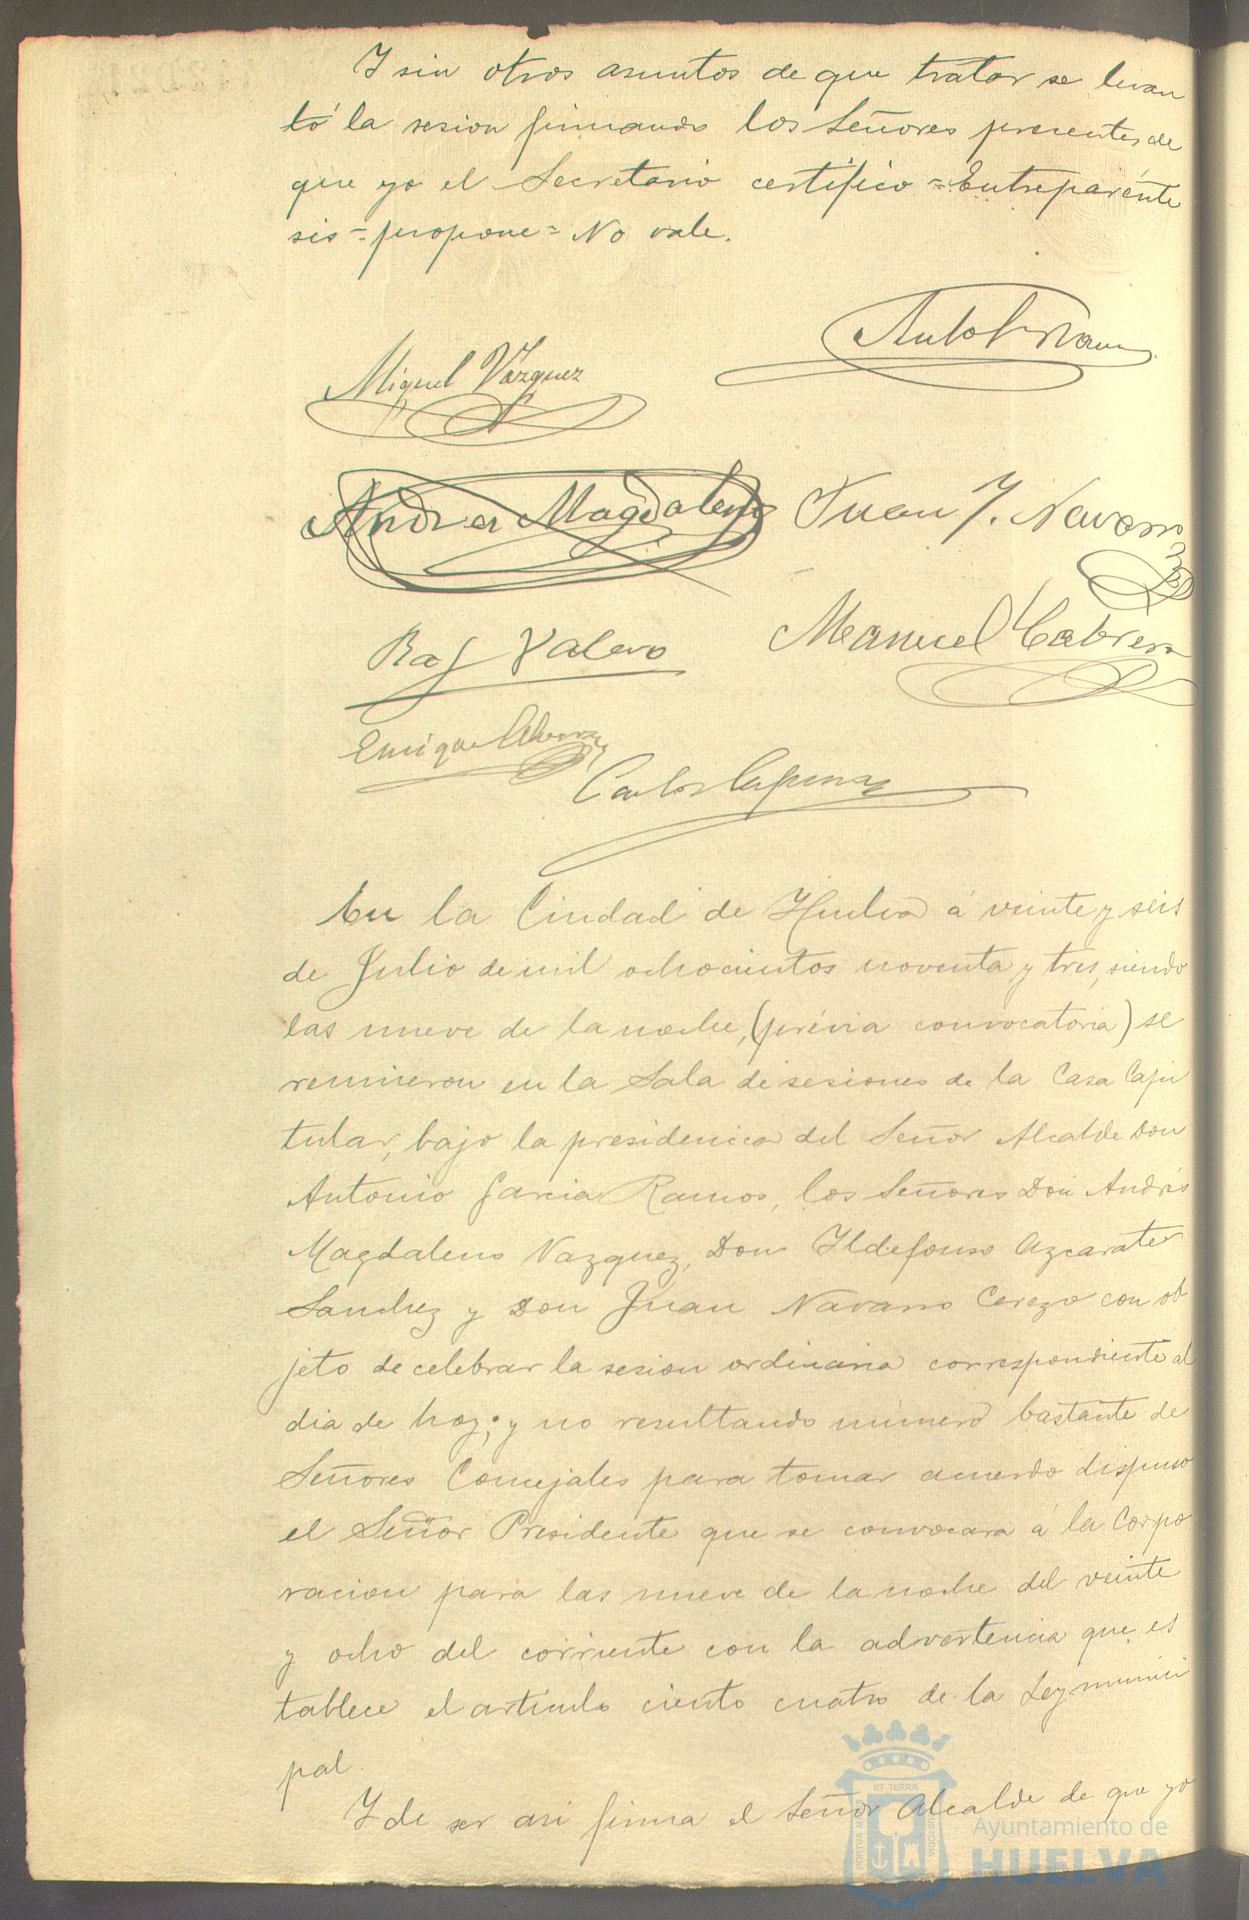 Y sin otros asuntos de que tratar se levan
tó la sesion firmando los Señores presentes de
que yo el Secretario certifico = Entreparénte
sis = propone = No vale.
Miguel Vázquez
Andres Magdaleno
Juan J. Navarro
Raf Valero
Manuel Cabrera
Enrique
Carlos
En la Ciudad de Huelva á veinte y seis
de Julio de mil ochocientos noventa y tres, siendo
las nueve de la noche, (prévia convocatoria) se
reunieron en la Sala de sesiones de la Casa Capi
tular, bajo la presidencia del Señor Alcalde Don
Antonio Garcia Ramos, los Señores Don Andrés
Magdaleno Vazquez, Don Ildefonso Azcarate
Sanchez y Don Juan Navarro Cerezo con ob
jeto de celebrar la sesion ordinaria correspondiente al
dia de hoy; y no resultando número bastante de
Señores Concejales para tomar acuerdo dispuso
el Señor Presidente que se convocara á la Corpo
racion para las nueve de la noche del veinte
y ocho del corriente con la advertencia que es
tablece el artículo ciento cuatro de la Ley munici
pal.
Y de ser asi firma el Señor Alcalde de que yo
PORTUS MARIS
ET TERRÆ
CUSTODIA
Ayuntamiento de
HUELVA